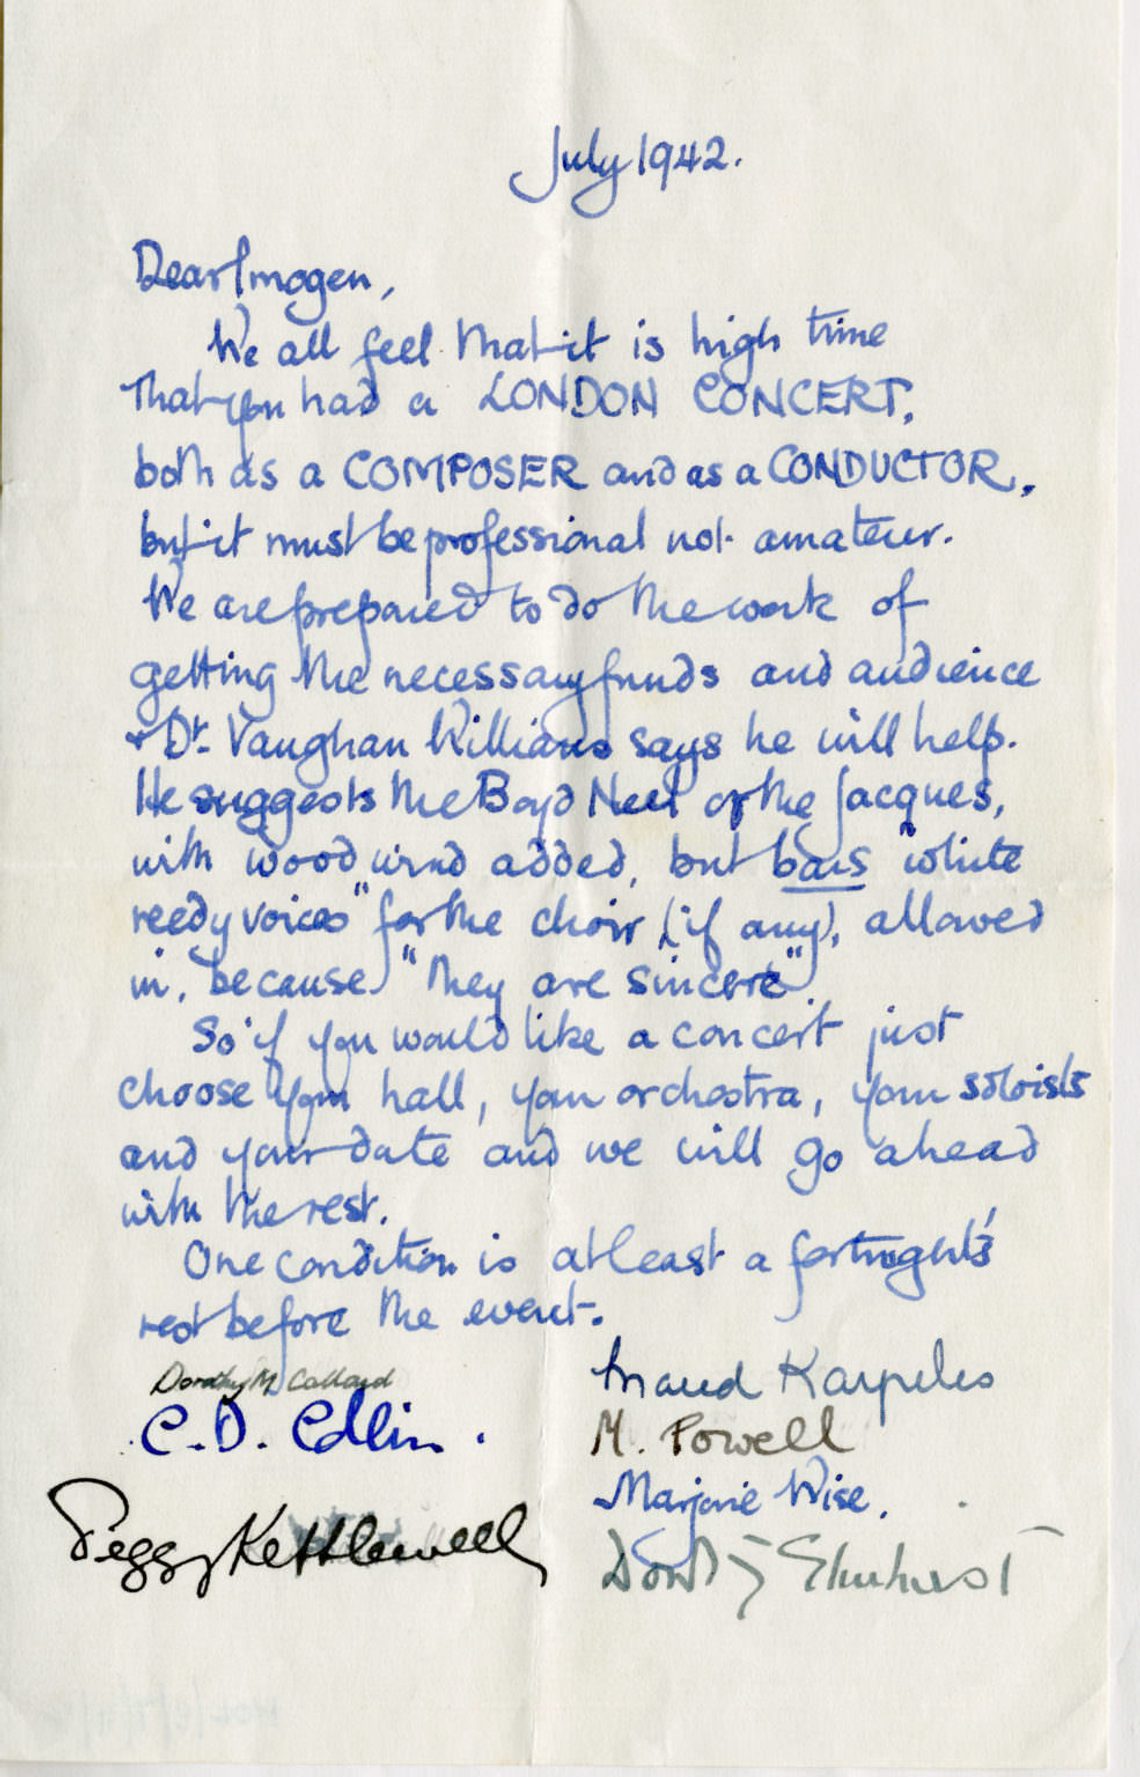 July 1942.
Dear Imogen,
We all feel that it is high time
that you had a LONDON CONCERT,
both as a COMPOSER and as a CONDUCTOR,
but it must be professional not amateur.
We are prepared to do the work of
getting the necessary funds and audience
+ Dr. Vaughan Williams says he will help.
He suggests the Boyd Neel or the Jacques,
with wood wind added, but bars "white
reedy voices" for the choir, (if any), allowed
in, because "they are sincere".
So if you would like a concert just
choose your hall, your orchestra, your soloists
and your date and we will go ahead
with the rest.
One condition is at least a fortnight's
rest before the event.
Dorothy M. Callard
C. D. Edlin.
Peggy Kettlewell
Maud Karpeles
M. Powell
Marjorie Wise.
Dorothy Elmhirst